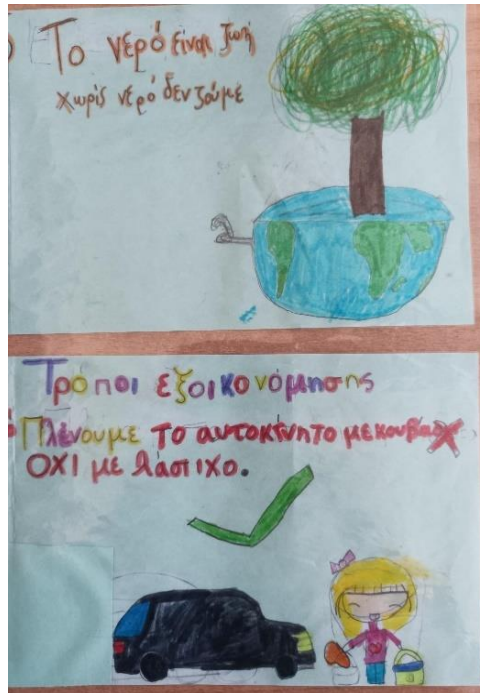 Το νερό είναι ζωή
χωρίς νερό δεν ζούμε
Τρόποι εξοικονόμησης
Πλένουμε το αυτοκίνητο με κουβα
ΟΧΙ με λάστιχο.